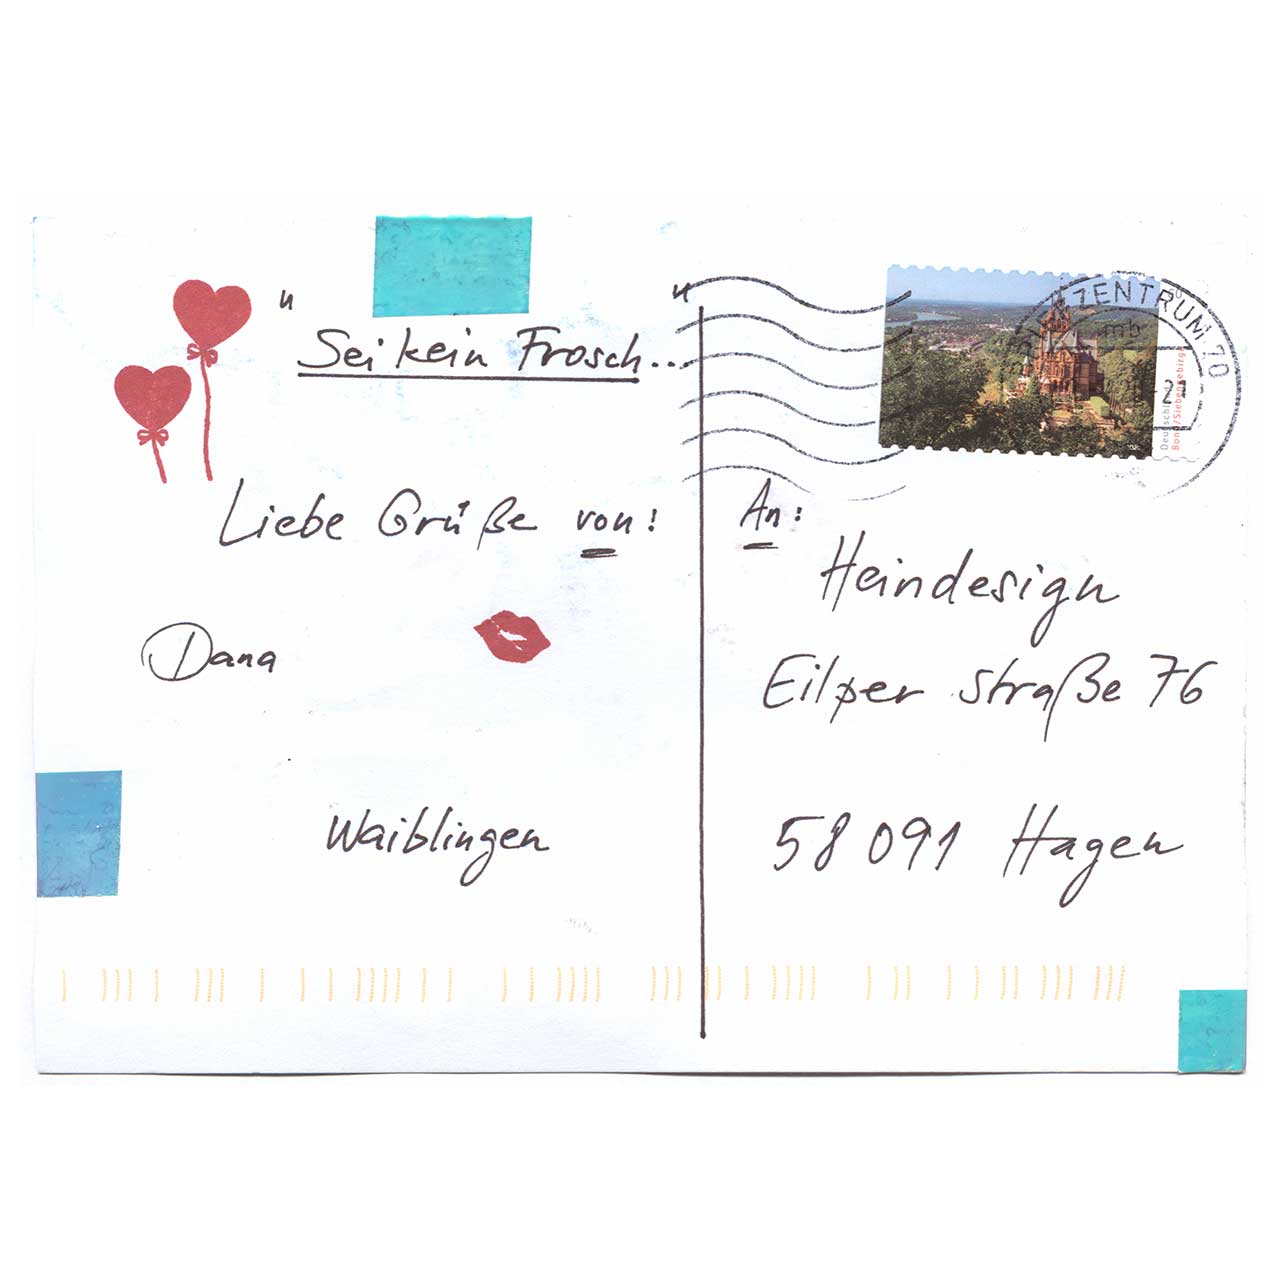 "Sei kein Frosch.."
Liebe Grüße von!
Dana
Waiblingen
ZENTRUM 70
mb
21
Bonn/Siebengebirge
An:
Heindesign
Eilper straße 76
58091 Hagen